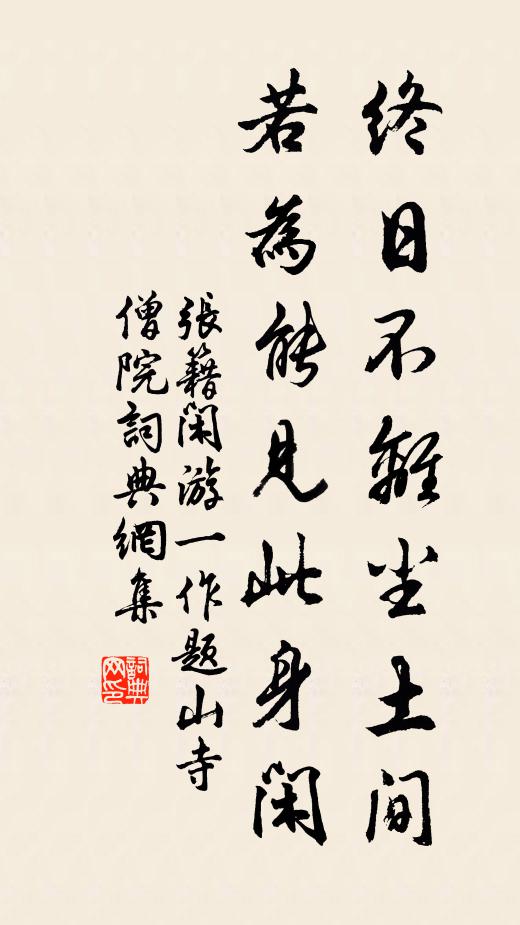 終日不離尘土间
若為能見此身閑
張籍閑游一作題山寺
僧院詞典網集
詞典
网印